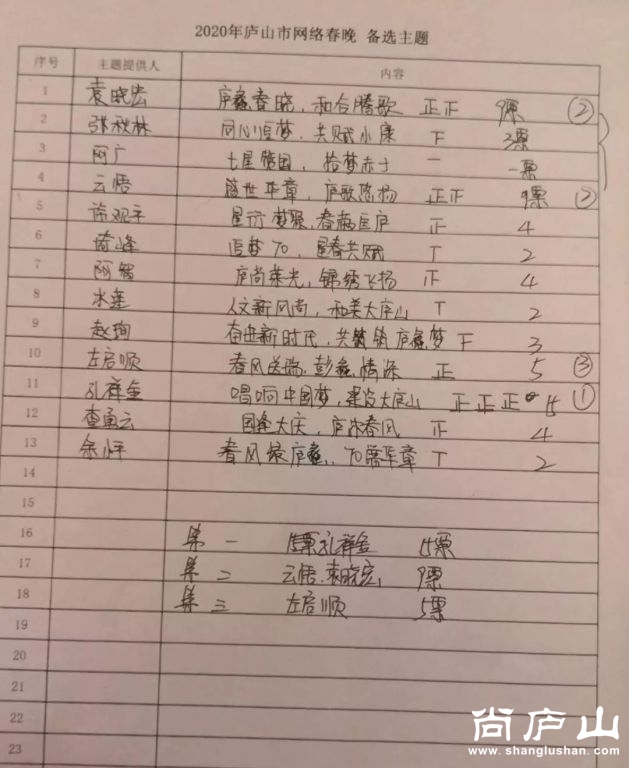 2020年庐山市网络春晚 备选主题
序号 主题提供人 内容
1 袁晓宏 庐蠡春晓，和合腾歌 正正 9票 ②
2 张秋林 同心追梦，共赋小康 下 3票
3 阿广 七星, 拾梦赤子 一 一票
4 云悟 盛世华章，庐歌悠扬 正正 9票 ②
5 观平 星, 春满匡庐 正 4
6 琦峰 追梦70，星春共赋 T 2
7 阿智 庐尚荣光，锦绣飞扬 正 4
8 水莲 人文新风尚，和美大庐山 T 2
9 赵珣 奋进新时代，共筑 庐蠡梦 下 3
10 左启顺 春风送瑞，彭蠡情深 正 5 ③
11 孔祥金 唱响中国梦，建设大庐山 正 正 正 15 ①
12 查勇云 国逢大庆，庐沐春风 正 4
13 余坪 春风绿庐蠡，70华章 T 2
14
15
16 第一 孔祥金 15票
17 第二 云悟、袁晓宏 9票
18 第三 左启顺 5票
19
20
21
22
23
尚庐山
www.shanglushan.com